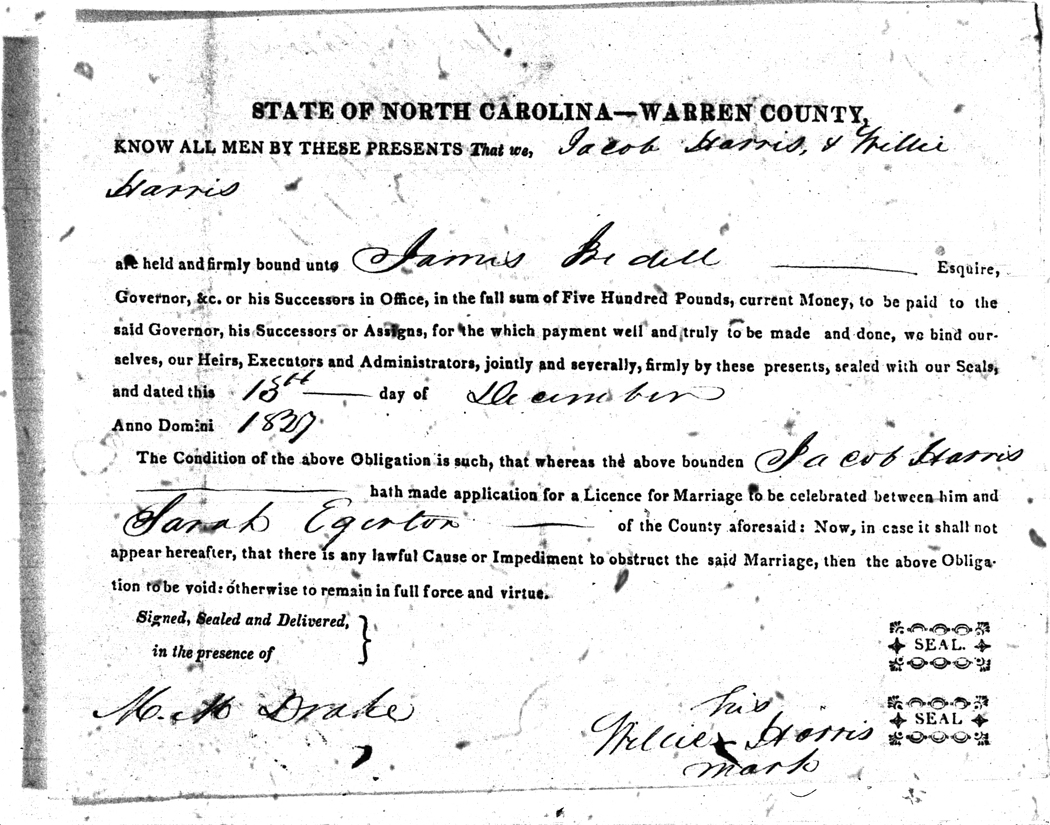 STATE OF NORTH CAROLINA—WARREN COUNTY,
KNOW ALL MEN BY THESE PRESENTS That we, Jacob Harris, & Willie
Harris
are held and firmly bound unto James Iredell Esquire,
Governor, &c. or his Successors in Office, in the full sum of Five Hundred Pounds, current Money, to be paid to the
said Governor, his Successors or Assigns, for the which payment well and truly to be made and done, we bind our-
selves, our Heirs, Executors and Administrators, jointly and severally, firmly by these presents, sealed with our Seals,
and dated this 13th day of December
Anno Domini 1827
The Condition of the above Obligation is such, that whereas the above bounden Jacob Harris
hath made application for a Licence for Marriage to be celebrated between him and
Sarah Egerton of the County aforesaid: Now, in case it shall not
appear hereafter, that there is any lawful Cause or Impediment to obstruct the said Marriage, then the above Obliga-
tion to be void: otherwise to remain in full force and virtue.
Signed, Sealed and Delivered,
in the presence of
SEAL.
M. M Drake
his
SEAL
Willie x Harris
mark